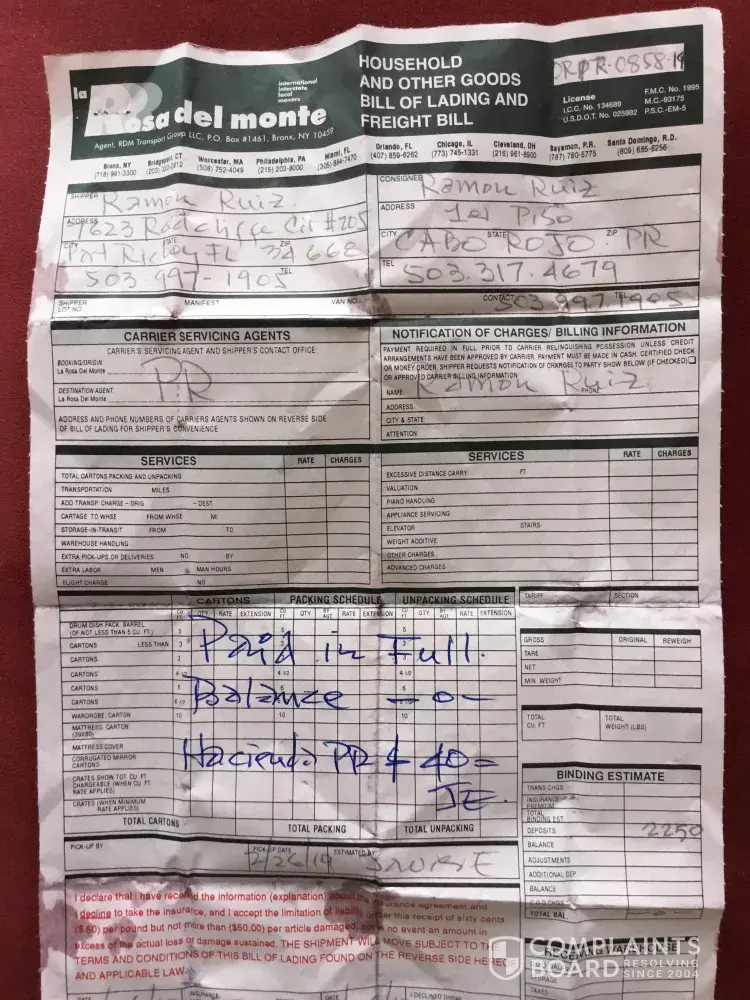 la Rosa del monte
international
interstate
local
movers
Agent, RDM Transport Group LLC, P.O. Box #1461, Bronx, NY 10459
HOUSEHOLD
AND OTHER GOODS
BILL OF LADING AND
FREIGHT BILL
DRPR-0858-19
License
I.C.C. No. 134689
U.S.D.O.T. No. 025982
F.M.C. No. 1995
M.C.-93175
P.S.C.-EM-5
Bronx, NY Bridgeport, CT Worcester, MA Philadelphia, PA Miami, FL Orlando, FL Chicago, IL Cleveland, OH Bayamon, P.R. Santo Domingo, R.D.
(718) 991-3300 (508) 752-4049 (215) 203-8000 (407) 859-6262 (773) 745-1331 (216) 961-8900 (787) 780-5775 (809) 685-6256
SHIPPER Ramon Ruiz
ADDRESS 7623 Radcliffe Cir #205
CITY STATE ZIP
Port Richey FL 34668
503-997-1905 TEL
CONSIGNEE Ramon Ruiz
ADDRESS 1er Piso
CITY CABO ROJO STATE ZIP PR
TEL 503.317.4679
SHIPPER LOT NO. MANIFEST VAN NO. CONTACT TEL 503 997.1905
CARRIER SERVICING AGENTS
CARRIER'S SERVICING AGENT AND SHIPPER'S CONTACT OFFICE:
BOOKING/ORIGIN
La Rosa Del Monte
PR
DESTINATION AGENT
La Rosa Del Monte
ADDRESS AND PHONE NUMBERS OF CARRIERS AGENTS SHOWN ON REVERSE SIDE
OF BILL OF LADING FOR SHIPPER'S CONVENIENCE
NOTIFICATION OF CHARGES/ BILLING INFORMATION
PAYMENT REQUIRED IN FULL PRIOR TO CARRIER RELINQUISHING POSSESSION UNLESS CREDIT
ARRANGEMENTS HAVE BEEN APPROVED BY CARRIER. PAYMENT MUST BE MADE IN CASH. CERTIFIED CHECK
OR MONEY ORDER. SHIPPER REQUESTS NOTIFICATION OF CHARGES TO PARTY SHOW BELOW (IF CHECKED)
OR APPROVED CARRIER BILLING INFORMATION
NAME Ramon Ruiz PHONE
ADDRESS
CITY & STATE
ATTENTION
SERVICES RATE CHARGES
TOTAL CARTONS PACKING AND UNPACKING
TRANSPORTATION MILES
ADD TRANSP CHARGE - ORIG - DEST
CARTAGE TO WHSE FROM WHSE MI.
STORAGE-IN-TRANSIT FROM TO
WAREHOUSE HANDLING
EXTRA PICK-UPS OR DELIVERIES NO BY
EXTRA LABOR MEN MAN HOURS
FLIGHT CHARGE NO
SERVICES RATE CHARGES
EXCESSIVE DISTANCE CARRY FT
VALUATION
PIANO HANDLING
APPLIANCE SERVICING
ELEVATOR STAIRS
WEIGHT ADDITIVE
OTHER CHARGES
ADVANCED CHARGES
CARTONS PACKING SCHEDULE UNPACKING SCHEDULE
CU FT QTY RATE EXTENSION CU FT QTY BY AGT. RATE EXTENSION CU FT QTY BY AGT. RATE EXTENSION
DRUM DISH PACK, BARREL
(OF NOT LESS THAN 5 CU FT.) 5 5 5
CARTONS LESS THAN 3
CARTONS 3
CARTONS 4 1/2 4 1/2 4 1/2
CARTONS 6
CARTONS 6 1/2
WARDROBE CARTON 10 10 10
MATTRESS CARTON
(39X80)
MATTRESS COVER
CORRUGATED MIRROR
CARTONS
CRATES SHOW TOT CU FT
CHARGEABLE (WHEN CU FT.
RATE APPLIES)
CRATES (WHEN MINIMUM
RATE APPLIES)
Paid in Full.
Balance -0-
Hacienda PR $ 40=
JE.
TOTAL CARTONS TOTAL PACKING TOTAL UNPACKING
TARIFF SECTION
ORIGINAL REWEIGH
GROSS
TARE
NET
MIN WEIGHT
TOTAL CU. FT
TOTAL WEIGHT (LBS)
BINDING ESTIMATE
TRANS CHGS
INSURANCE PREMIUM
TOTAL BINDING EST
DEPOSITS 2250
BALANCE
ADJUSTMENTS
ADDITIONAL DEP
BALANCE
C.O.D CHGS
TOTAL BAL -0-
PICK-UP BY PICK-UP DATE 2/26/19 ESTIMATED BY
I declare that I have received the information (explanation) about the insurance agreement and
I decline to take the insurance, and I accept the limitation of liability under this receipt of sixty cents
($.60) per pound but not more than ($50.00) per article damaged, in no event an amount in
excess of the actual loss or damage sustained. THE SHIPMENT WILL MOVE SUBJECT TO THE
TERMS AND CONDITIONS OF THIS BILL OF LADING FOUND ON THE REVERSE SIDE HEREOF
AND APPLICABLE LAW.
RECEIVING WAREHOUSE
STORAGE
TAXES
DATE INSURANCE DATE I DECLINED
COMPLAINTS
BOARD RESOLVING
SINCE 2004